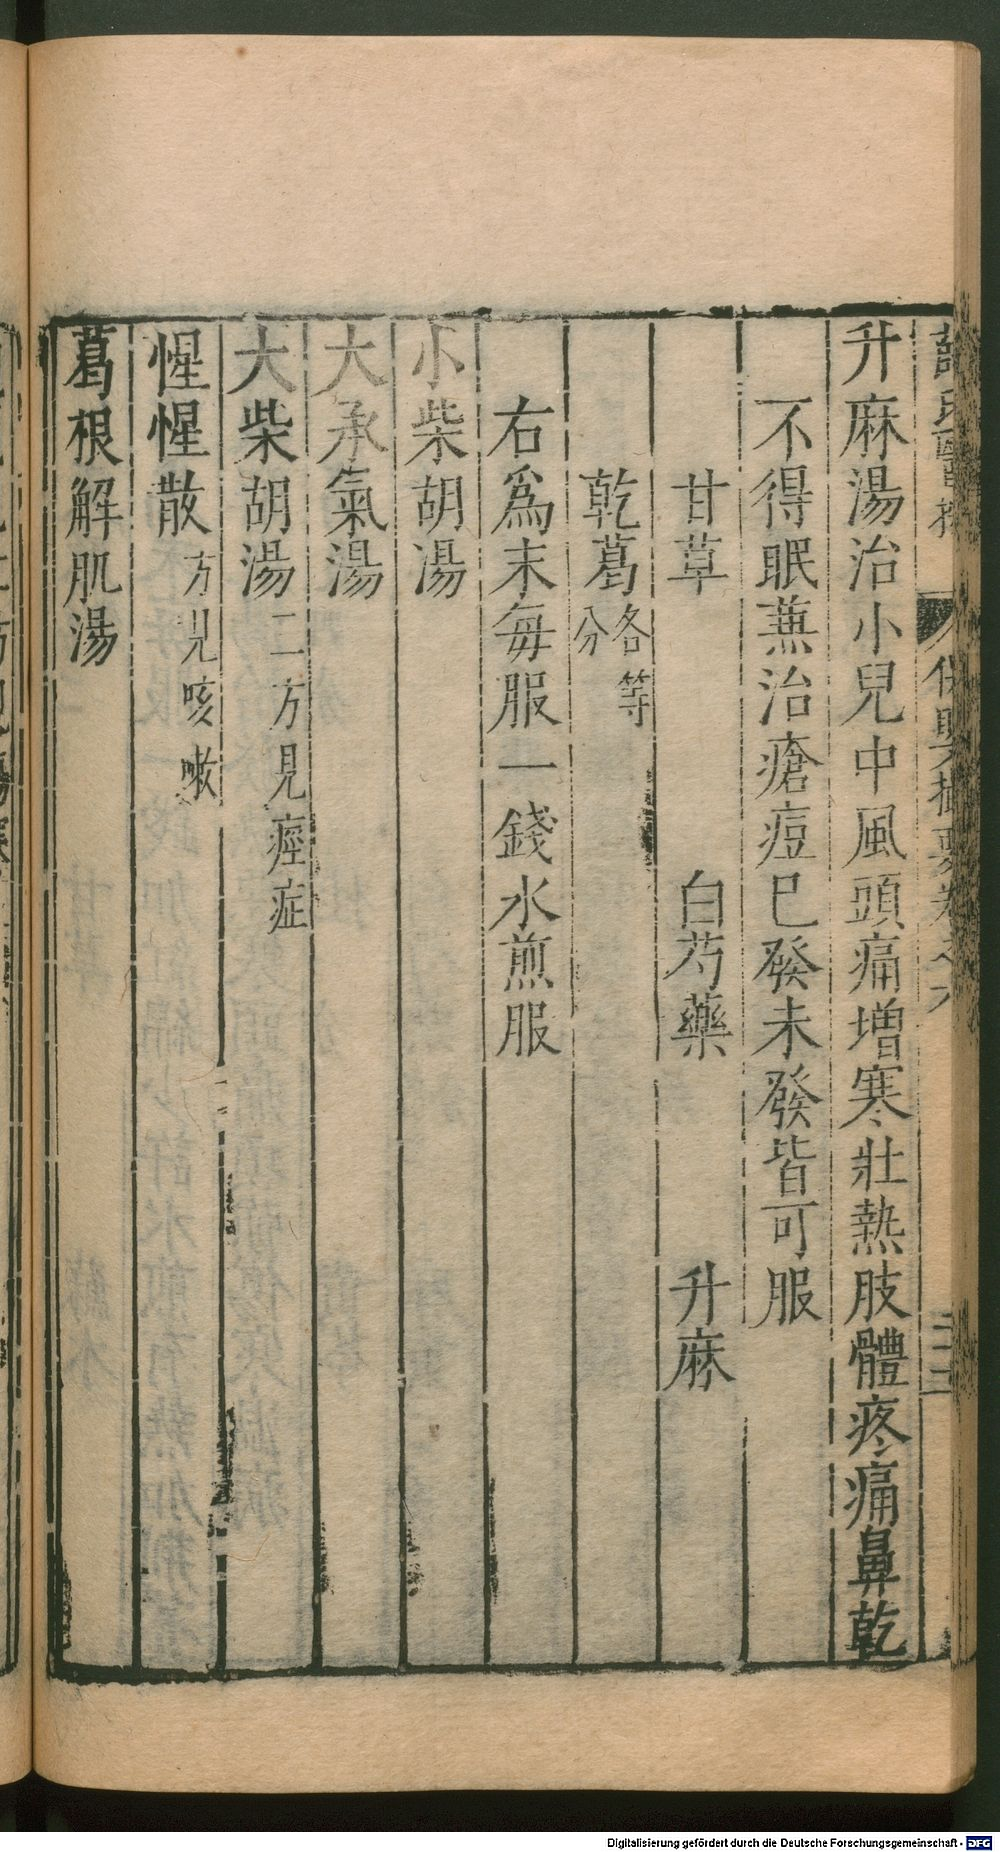 薛氏醫按 保嬰撮要卷之六 三三
升麻湯治小兒中風頭痛增寒壯熱肢體疼痛鼻乾
不得眠兼治瘡痘已發未發皆可服
甘草 白芍藥 升麻
乾葛各等分
右爲末每服一錢水煎服
小柴胡湯
大承氣湯
大柴胡湯二方見痙症
惺惺散方見咳嗽
葛根解肌湯
Digitalisierung gefördert durch die Deutsche Forschungsgemeinschaft - DFG